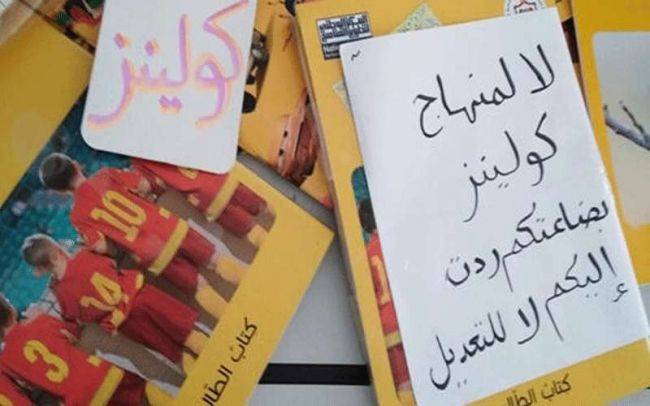 كولينز
لا لمنهاج
كولينز
بضاعتكم ردت
إليكم لا للتعديل
كتاب الطال
كتاب الطال
10
14
3